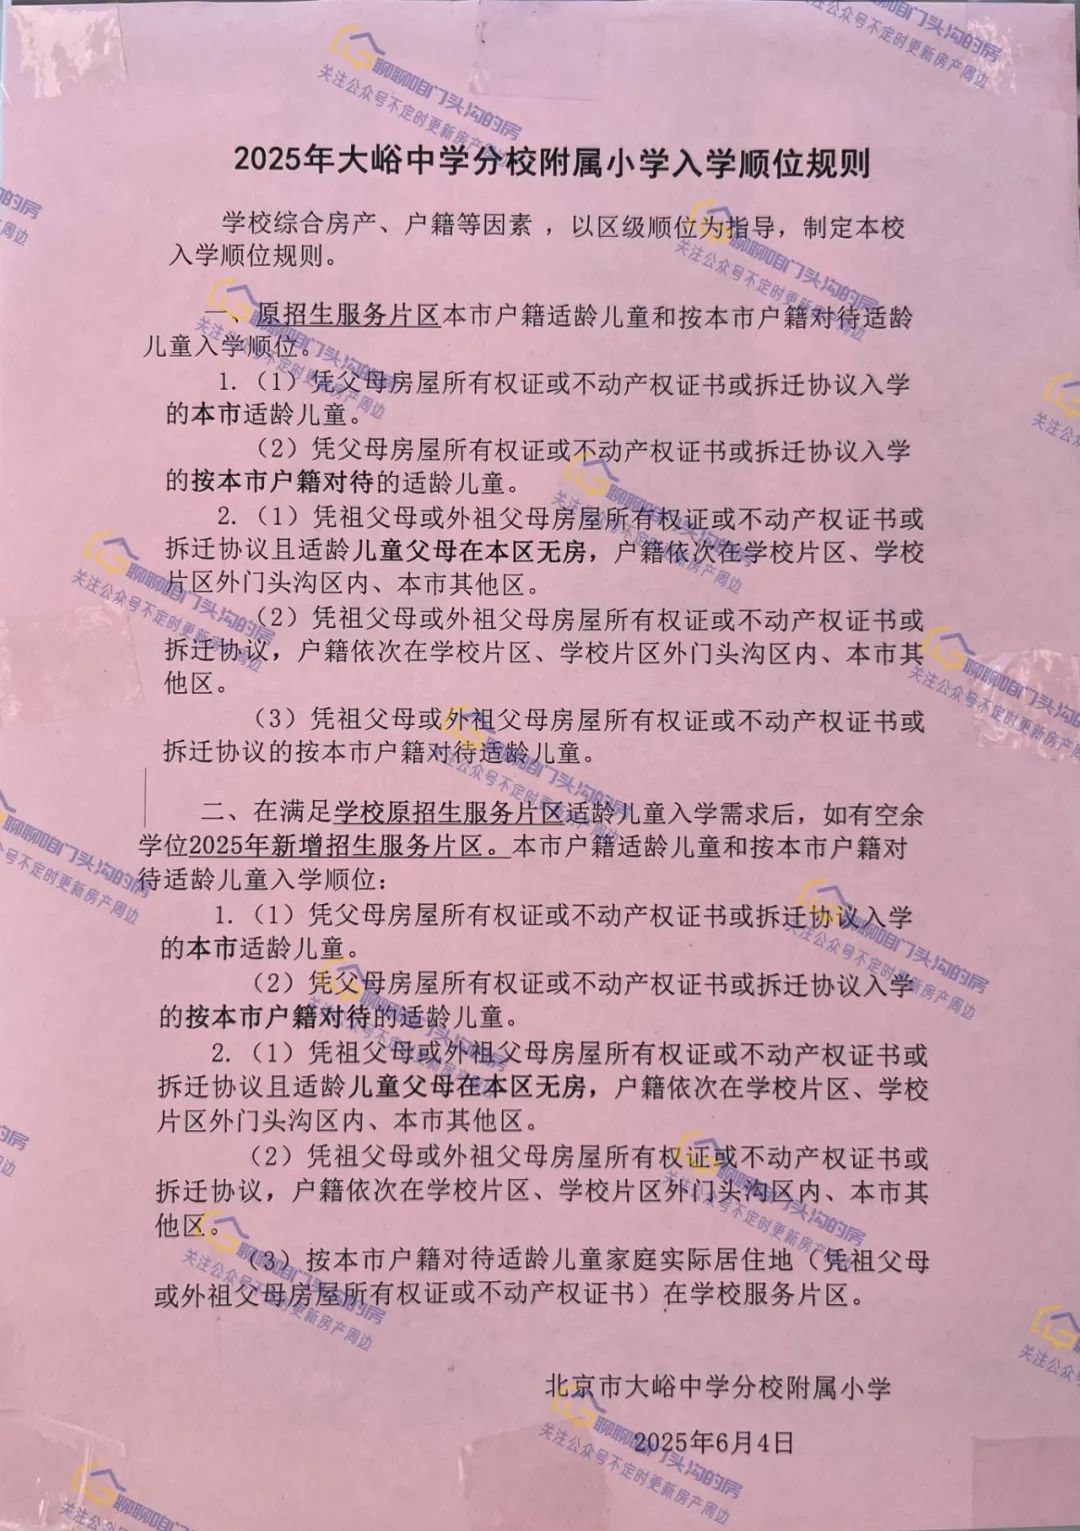 2025年大峪中学分校附属小学入学顺位规则
学校综合房产、户籍等因素，以区级顺位为指导，制定本校
入学顺位规则。
一、原招生服务片区本市户籍适龄儿童和按本市户籍对待适龄
儿童入学顺位。
1.（1）凭父母房屋所有权证或不动产权证书或拆迁协议入学
的本市适龄儿童。
（2）凭父母房屋所有权证或不动产权证书或拆迁协议入学
的按本市户籍对待的适龄儿童。
2.（1）凭祖父母或外祖父母房屋所有权证或不动产权证书或
拆迁协议且适龄儿童父母在本区无房，户籍依次在学校片区、学校
片区外门头沟区内、本市其他区。
（2）凭祖父母或外祖父母房屋所有权证或不动产权证书或
拆迁协议，户籍依次在学校片区、学校片区外门头沟区内、本市其
他区。
（3）凭祖父母或外祖父母房屋所有权证或不动产权证书或
拆迁协议的按本市户籍对待适龄儿童。
二、在满足学校原招生服务片区适龄儿童入学需求后，如有空余
学位2025年新增招生服务片区。本市户籍适龄儿童和按本市户籍对
待适龄儿童入学顺位：
1.（1）凭父母房屋所有权证或不动产权证书或拆迁协议入学
的本市适龄儿童。
（2）凭父母房屋所有权证或不动产权证书或拆迁协议入学
的按本市户籍对待的适龄儿童。
2.（1）凭祖父母或外祖父母房屋所有权证或不动产权证书或
拆迁协议且适龄儿童父母在本区无房，户籍依次在学校片区、学校
片区外门头沟区内、本市其他区。
（2）凭祖父母或外祖父母房屋所有权证或不动产权证书或
拆迁协议，户籍依次在学校片区、学校片区外门头沟区内、本市其
他区。
（3）按本市户籍对待适龄儿童家庭实际居住地（凭祖父母
或外祖父母房屋所有权证或不动产权证书）在学校服务片区。
北京市大峪中学分校附属小学
2025年6月4日
聊聊咱门头沟的房
关注公众号不定时更新房产周边